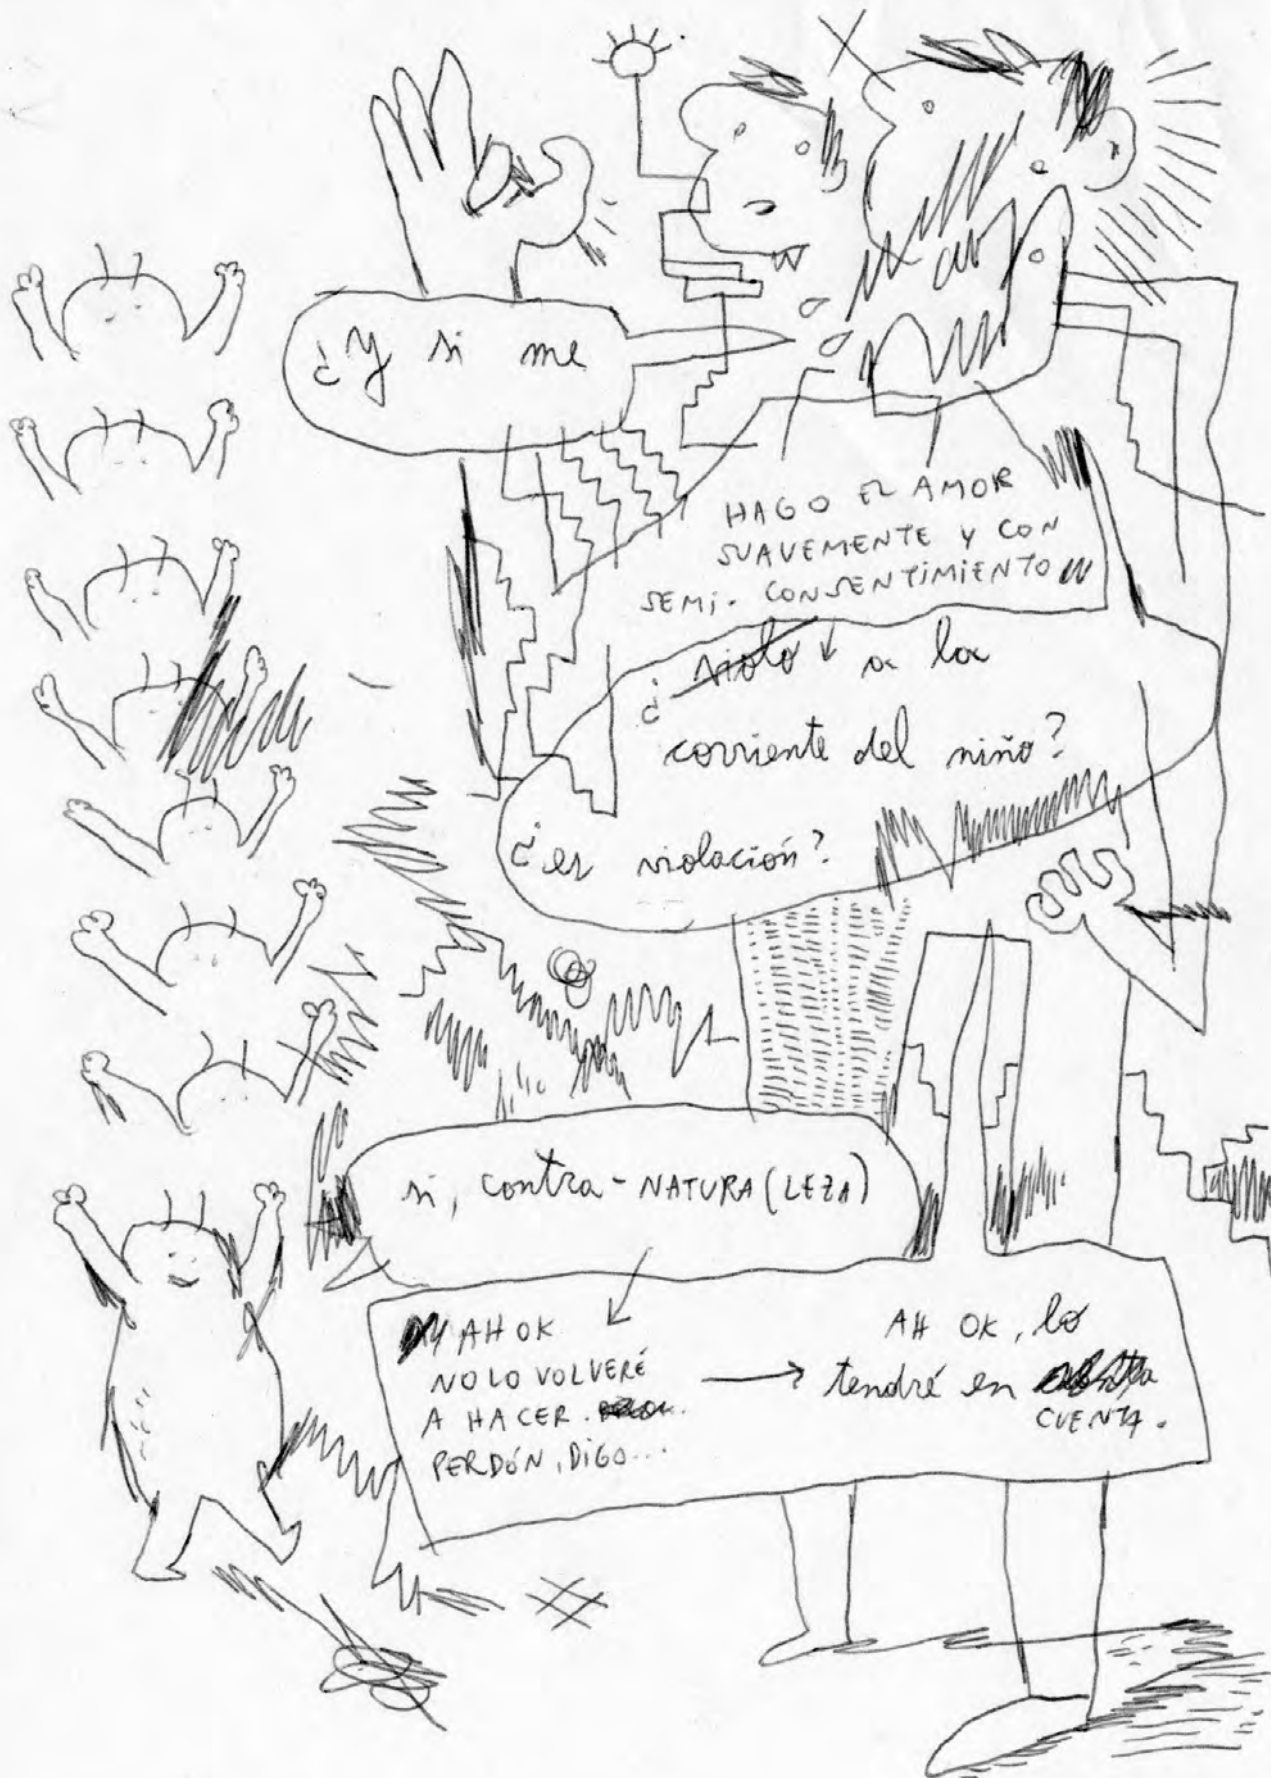 ¿Y si me
HAGO EL AMOR
SUAVEMENTE Y CON
SEMI. CONSENTIMIENTO
¿violo a la
corriente del niño?
¿es violación?
si, contra-NATURA(LEZA)
AH OK
NO LO VOLVERÉ
A HACER.
PERDÓN, DIGO...
AH OK, lo
tendré en
CUENTA.